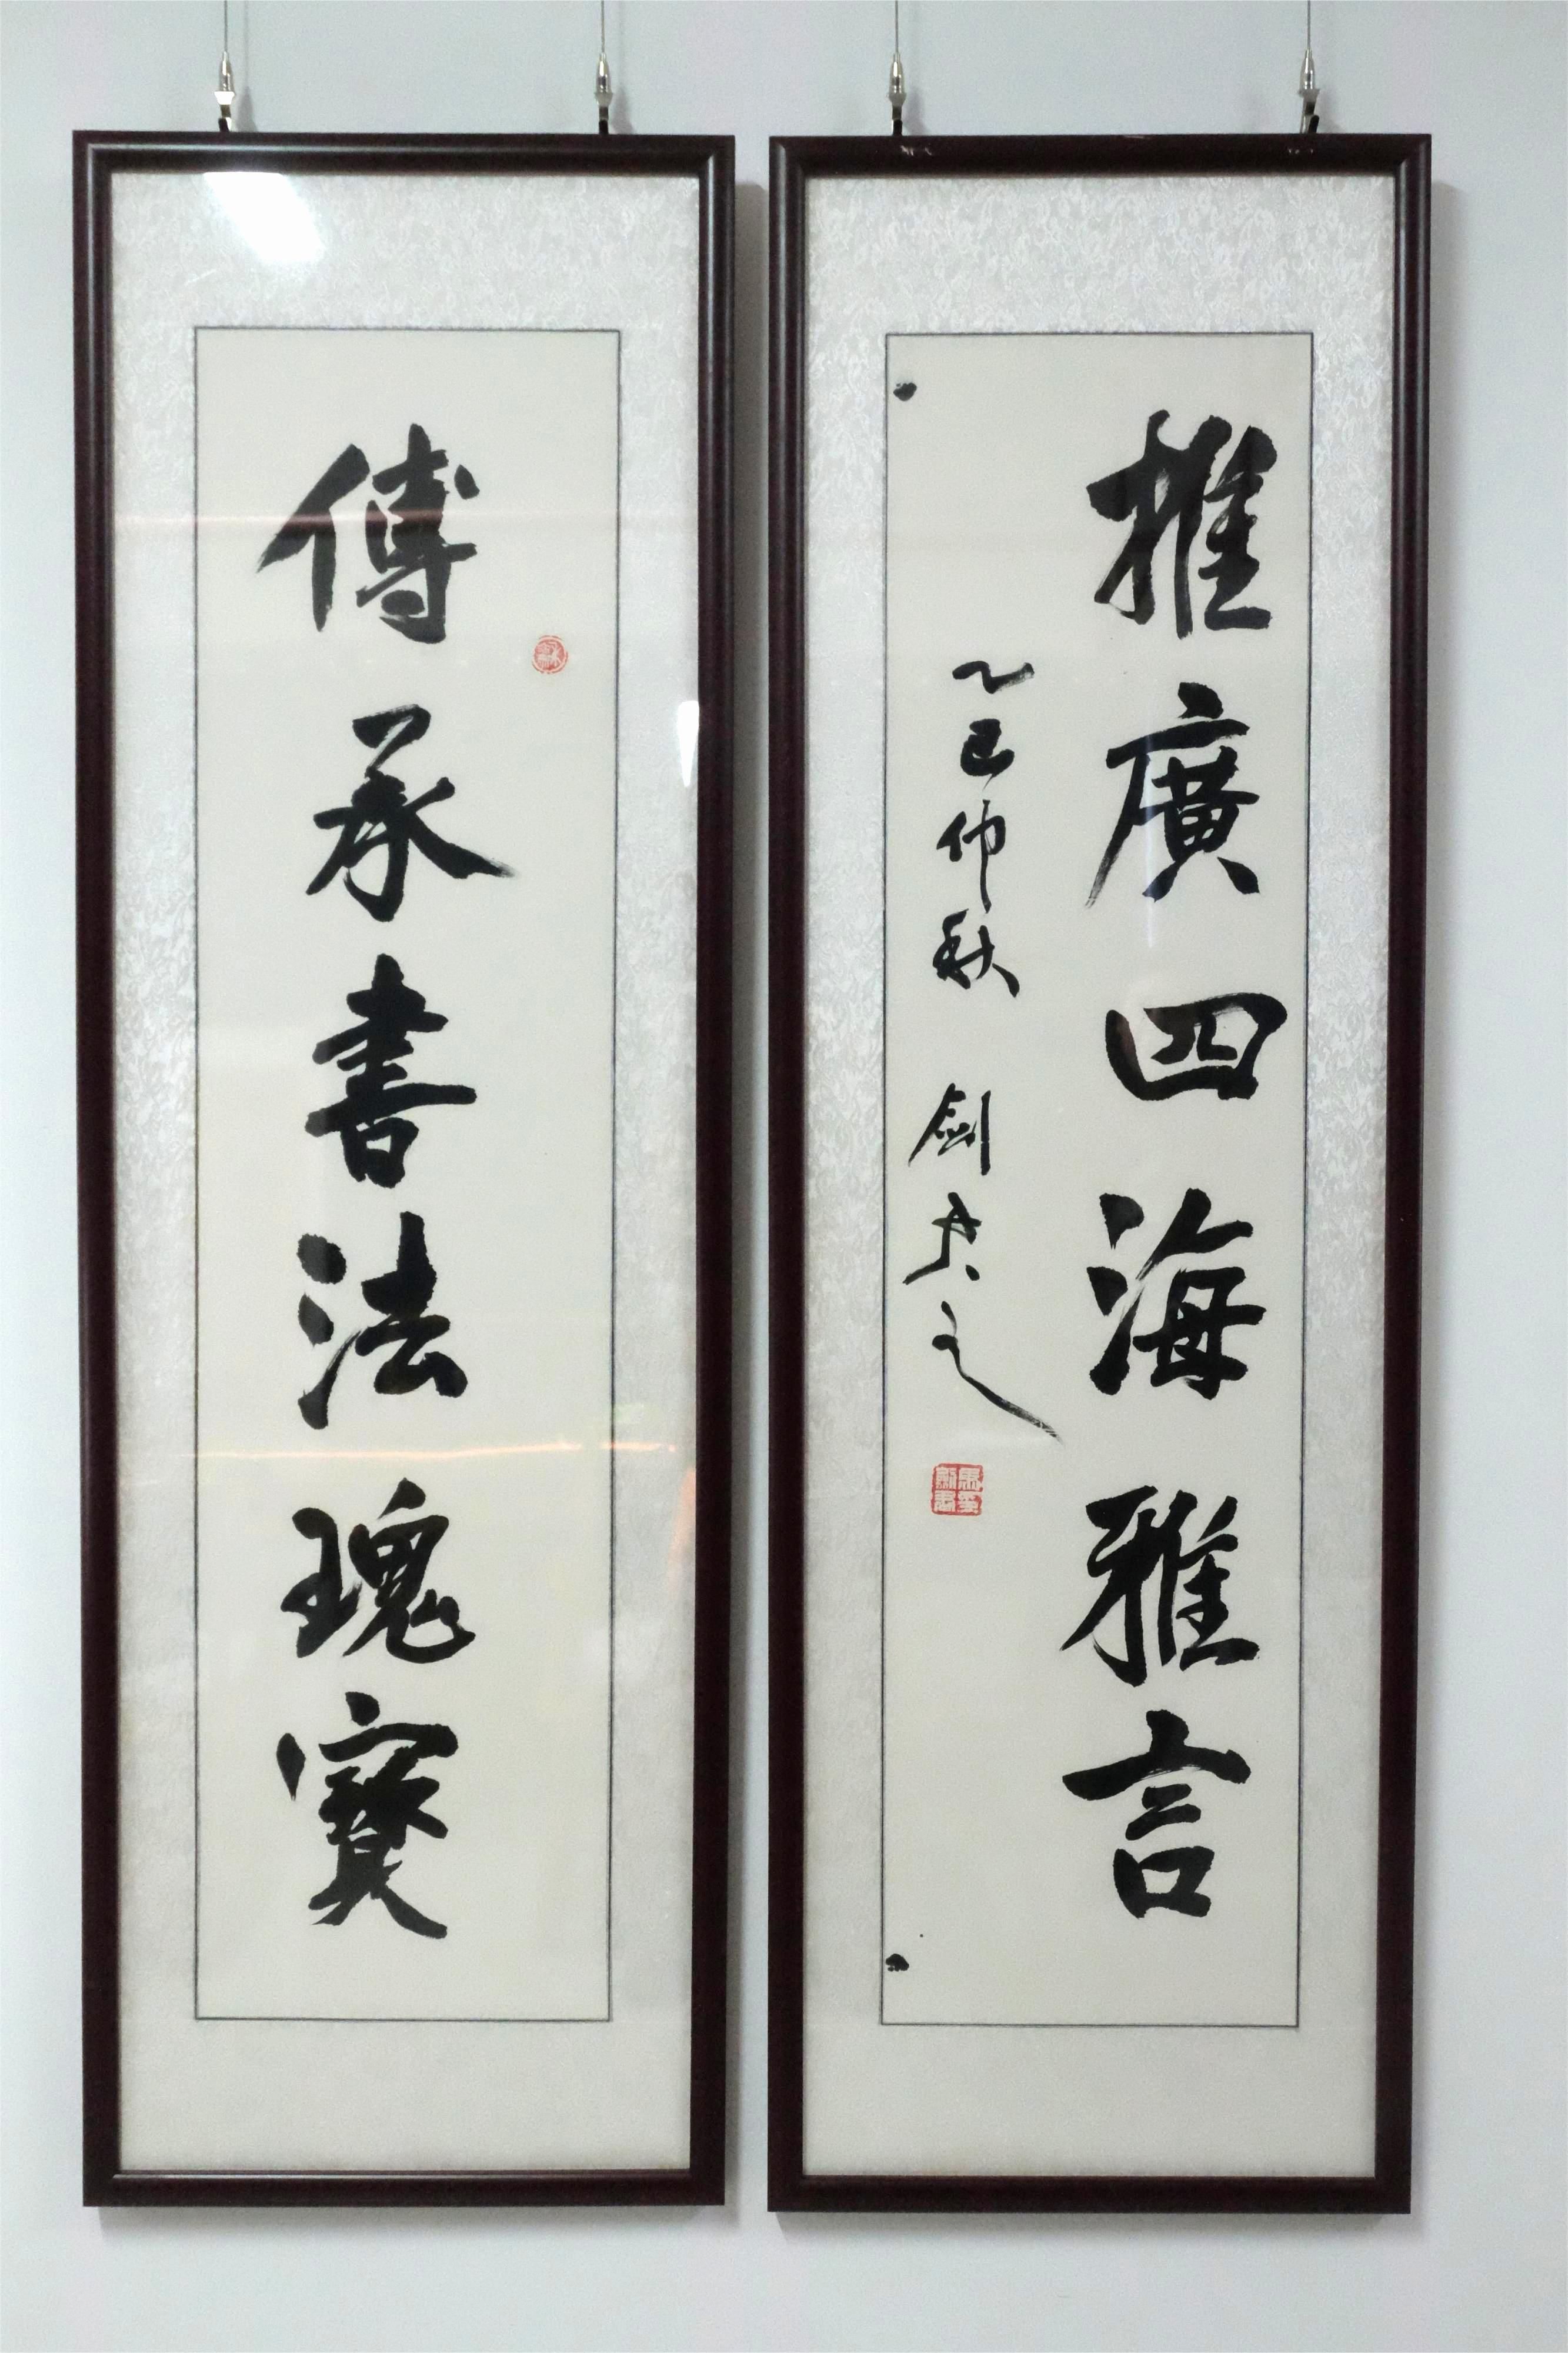 傳承書法瑰寶
推廣四海雅言
乙巳仲秋 劍